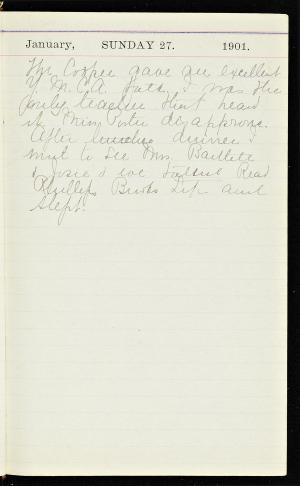 January, SUNDAY 27. 1901.
Mr. Cooper gave an excellent
Y. M. C. A. talk, I was the
only teacher that heard
it. Miss Porter disapprove.
After lunch dinner I
went to see Mrs. Bartlett
& Josie & we talked Read
Phillips Brooks Life and
slept.